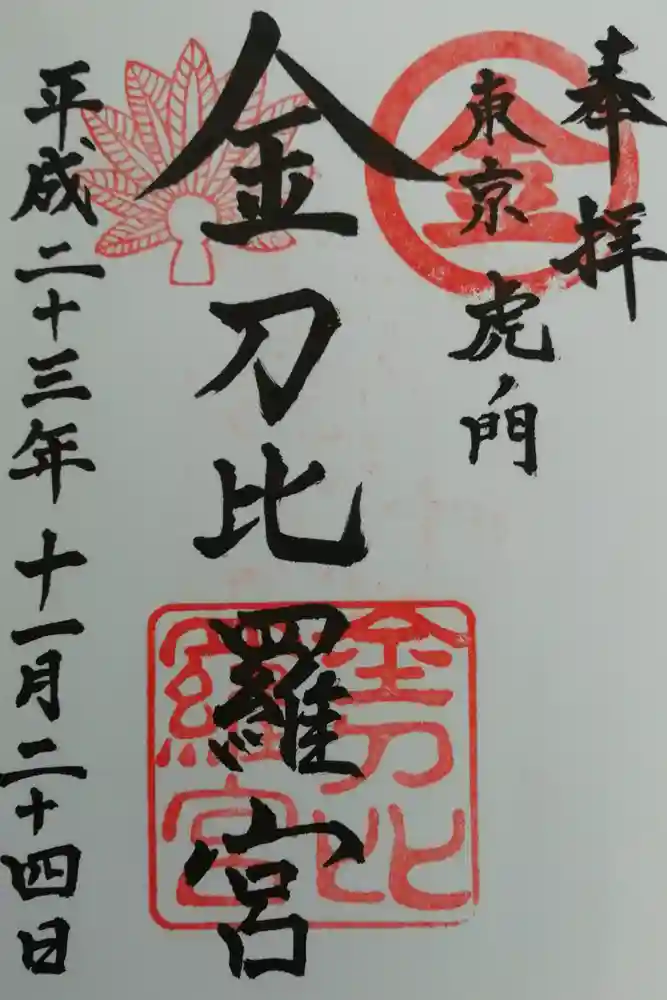 奉拝
東京虎ノ門
金
金刀比羅宮
金刀比
羅宮
平成二十三年十一月二十四日